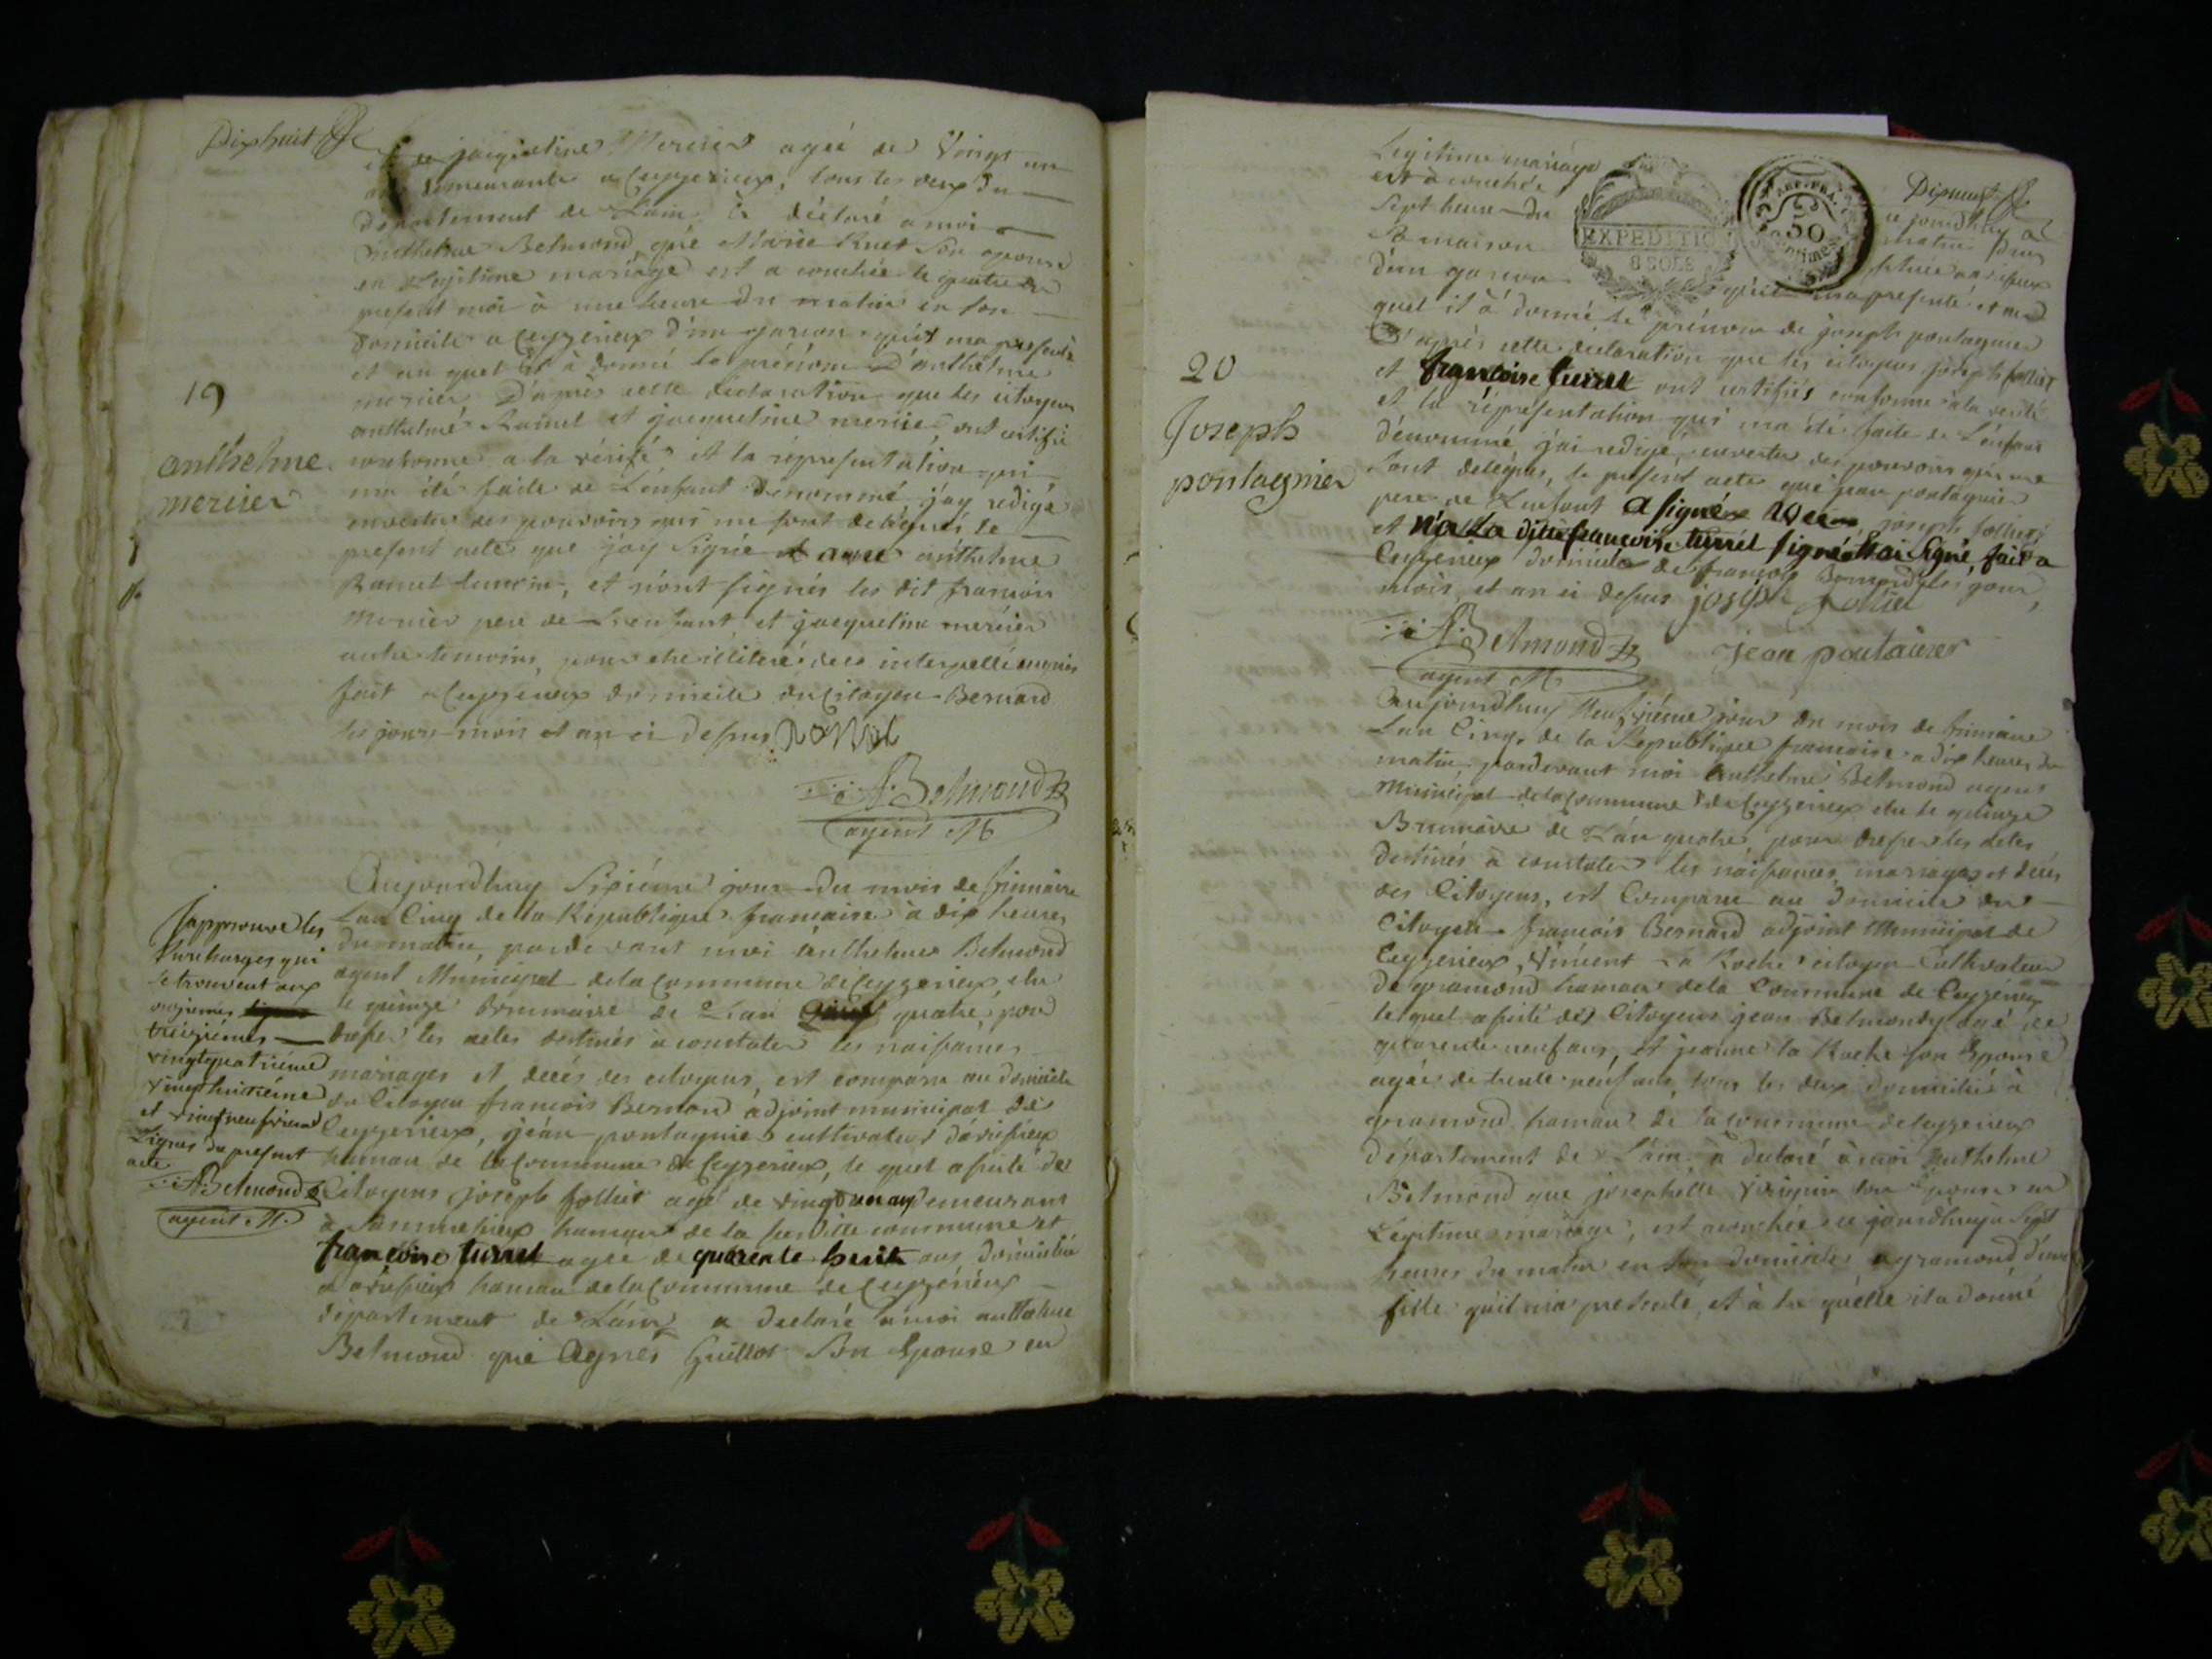 Dixhuit
jacqueline Mercier agée de Vingt un
ans demeurante a Ceyzerieux, tous les deux du
departement de Lain, a déclaré a moi
Anthelme Belmond que Marie Ruet son epouse
en Legitime mariage est a couchée le quatre du
present moi à une heure du matin en son
domicile a Ceyzerieux d'un garcon qu'il ma presenté
et au quel il à donné le prénom D'anthelme
mercier D'après cette déclaration que les citoyens
anthelme Ramel et jacqueline mercier ont certifié
conforme a la vérité et la répresentation qui
ma été faite de L'enfant dénommé j'ay redigé
en vertu des pouvoirs qui me sont delegués le
present acte que j'ay signé avec anthelme
Ramel temoin, et n'ont signés les dit francois
Mercier pere de L'enfant et jacqueline mercier
autre temoins, pour etre illiteré de ce interpellé
fait a Ceyzerieux domicile du Citoyen Bernard
les jours mois et an ci dessus Ramel
ABelmond
agent M
19
anthelme
mercier
Aujourdhuy Sixiéme jour du mois de frimaire
Lan Cinq de la République francaise à dix heures
du matin, pardevant moi anthelme Belmond
agent Municipal de la Commune de Ceyzerieux elu
le quinze Brumaire de Lan quatre, pour
dresser les actes destinés à constater les naissances
mariages et decés des citoyens, est comparu au domicile
du Citoyen francois Bernard adjoint municipal de
Ceyzerieux, jean pontagnier cultivateur d'avrissieux
hamau de la Commune de Ceyzerieux, le quel assisté des
Citoyens joseph folliet agé de vingt un ans demeurant
à hamau de la susdite commune et
francoise turrel agée de quarente huit ans domicilié
a avrissieux hamau de la Commune de Ceyzérieux
departement de Lain a declaré a moi anthelme
Belmond que Agnes Guillot Son Epouse en
J'approuve les
surcharges qui
se trouvent aux
onziemes
treiziémes
vingtquatriéme
vingthuitiéme
et vingt neufviéme
Lignes du present
acte
ABelmond
agent M.
Dixneuf
Legitime mariage
est a couchée ce jourdhuy a
sept heure du matin dans
Sa maison située a avrissieux
d'un garcon qu'il ma presenté et au
quel il à donné le prénom de joseph pontagnier
D'après cette déclaration que les citoyens joseph folliet
et francoise turrel ont certifiés conforme a la verité
et la répresentation qui ma été faite de L'enfant
dénommé j'ai redigé en vertu des pouvoirs qui me
sont delégués, le présent acte que jean pontagnier
pere de L'enfant a signé avec joseph folliet
et n'a la dite francoise turrel signé et ai signé, fait a
Ceyzerieux domicile de francois Bernard les jour,
mois, et an ci dessus joseph folliet
ABelmond jean pontainier
agent M
20
Joseph
pontagnier
EXPEDITION
8 SOLS
50
Centimes
Aujourdhuy Neufviéme jour du mois de frimaire
Lan Cinq, de la Republique francaise a dix heures du
matin, pardevant moi Anthelme Belmond agent
Municipal de la Commune de Ceyzerieux elu le quinze
Brumaire de Lan quatre, pour dresser les actes
destinés à constater les naissances, mariages et décés
des Citoyens, est Comparu au Domicile du
Citoyen francois Bernard adjoint Municipal de
Ceyzerieux, Vincent La Roche citoyen Cultivateur
De gramond hamau de la Commune de Ceyzérieux
le quel assisté des Citoyens jean Belmond agé de
quarente neuf ans, et jeanne la Roche son Epouse
agée de trente neuf ans, tous les deux domiciliés à
gramond hamau de la commune de Ceyzerieux
département de Lain a declaré à moi Anthelme
Belmond que josephette son Epouse en
Legitime mariage, est acouchée ce jourdhuy a Sept
heures du matin en son domicile a gramond d'une
fille qu'il m'a presenté, et à la quelle il a donné